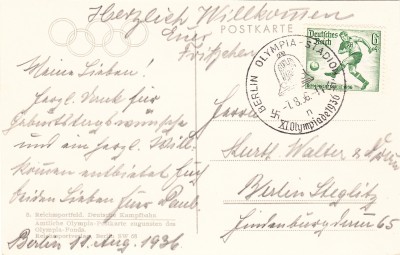 Herzlich Willkommen
Euer
Fritzchen
POSTKARTE
Deutsches Reich
6
BERLIN OLYMPIA-STADION
-1.8.36.
n
XI. Olympiade 1936
Meine Lieben!
Herzl. Dank für
Geburtstagswünsche
und ein herzl. Will-
kommen entbietet Euch
beiden Lieben Euer Paul.
Herrn
Kurt Walter &
Berlin Steglitz
Hindenburgdamm 65
Reichssportfeld. Deutsche Kampfbahn
Amtliche Olympia-Postkarte zugunsten des
Olympia-Fonds
Berlin SW 68
Berlin 11. Aug. 1936